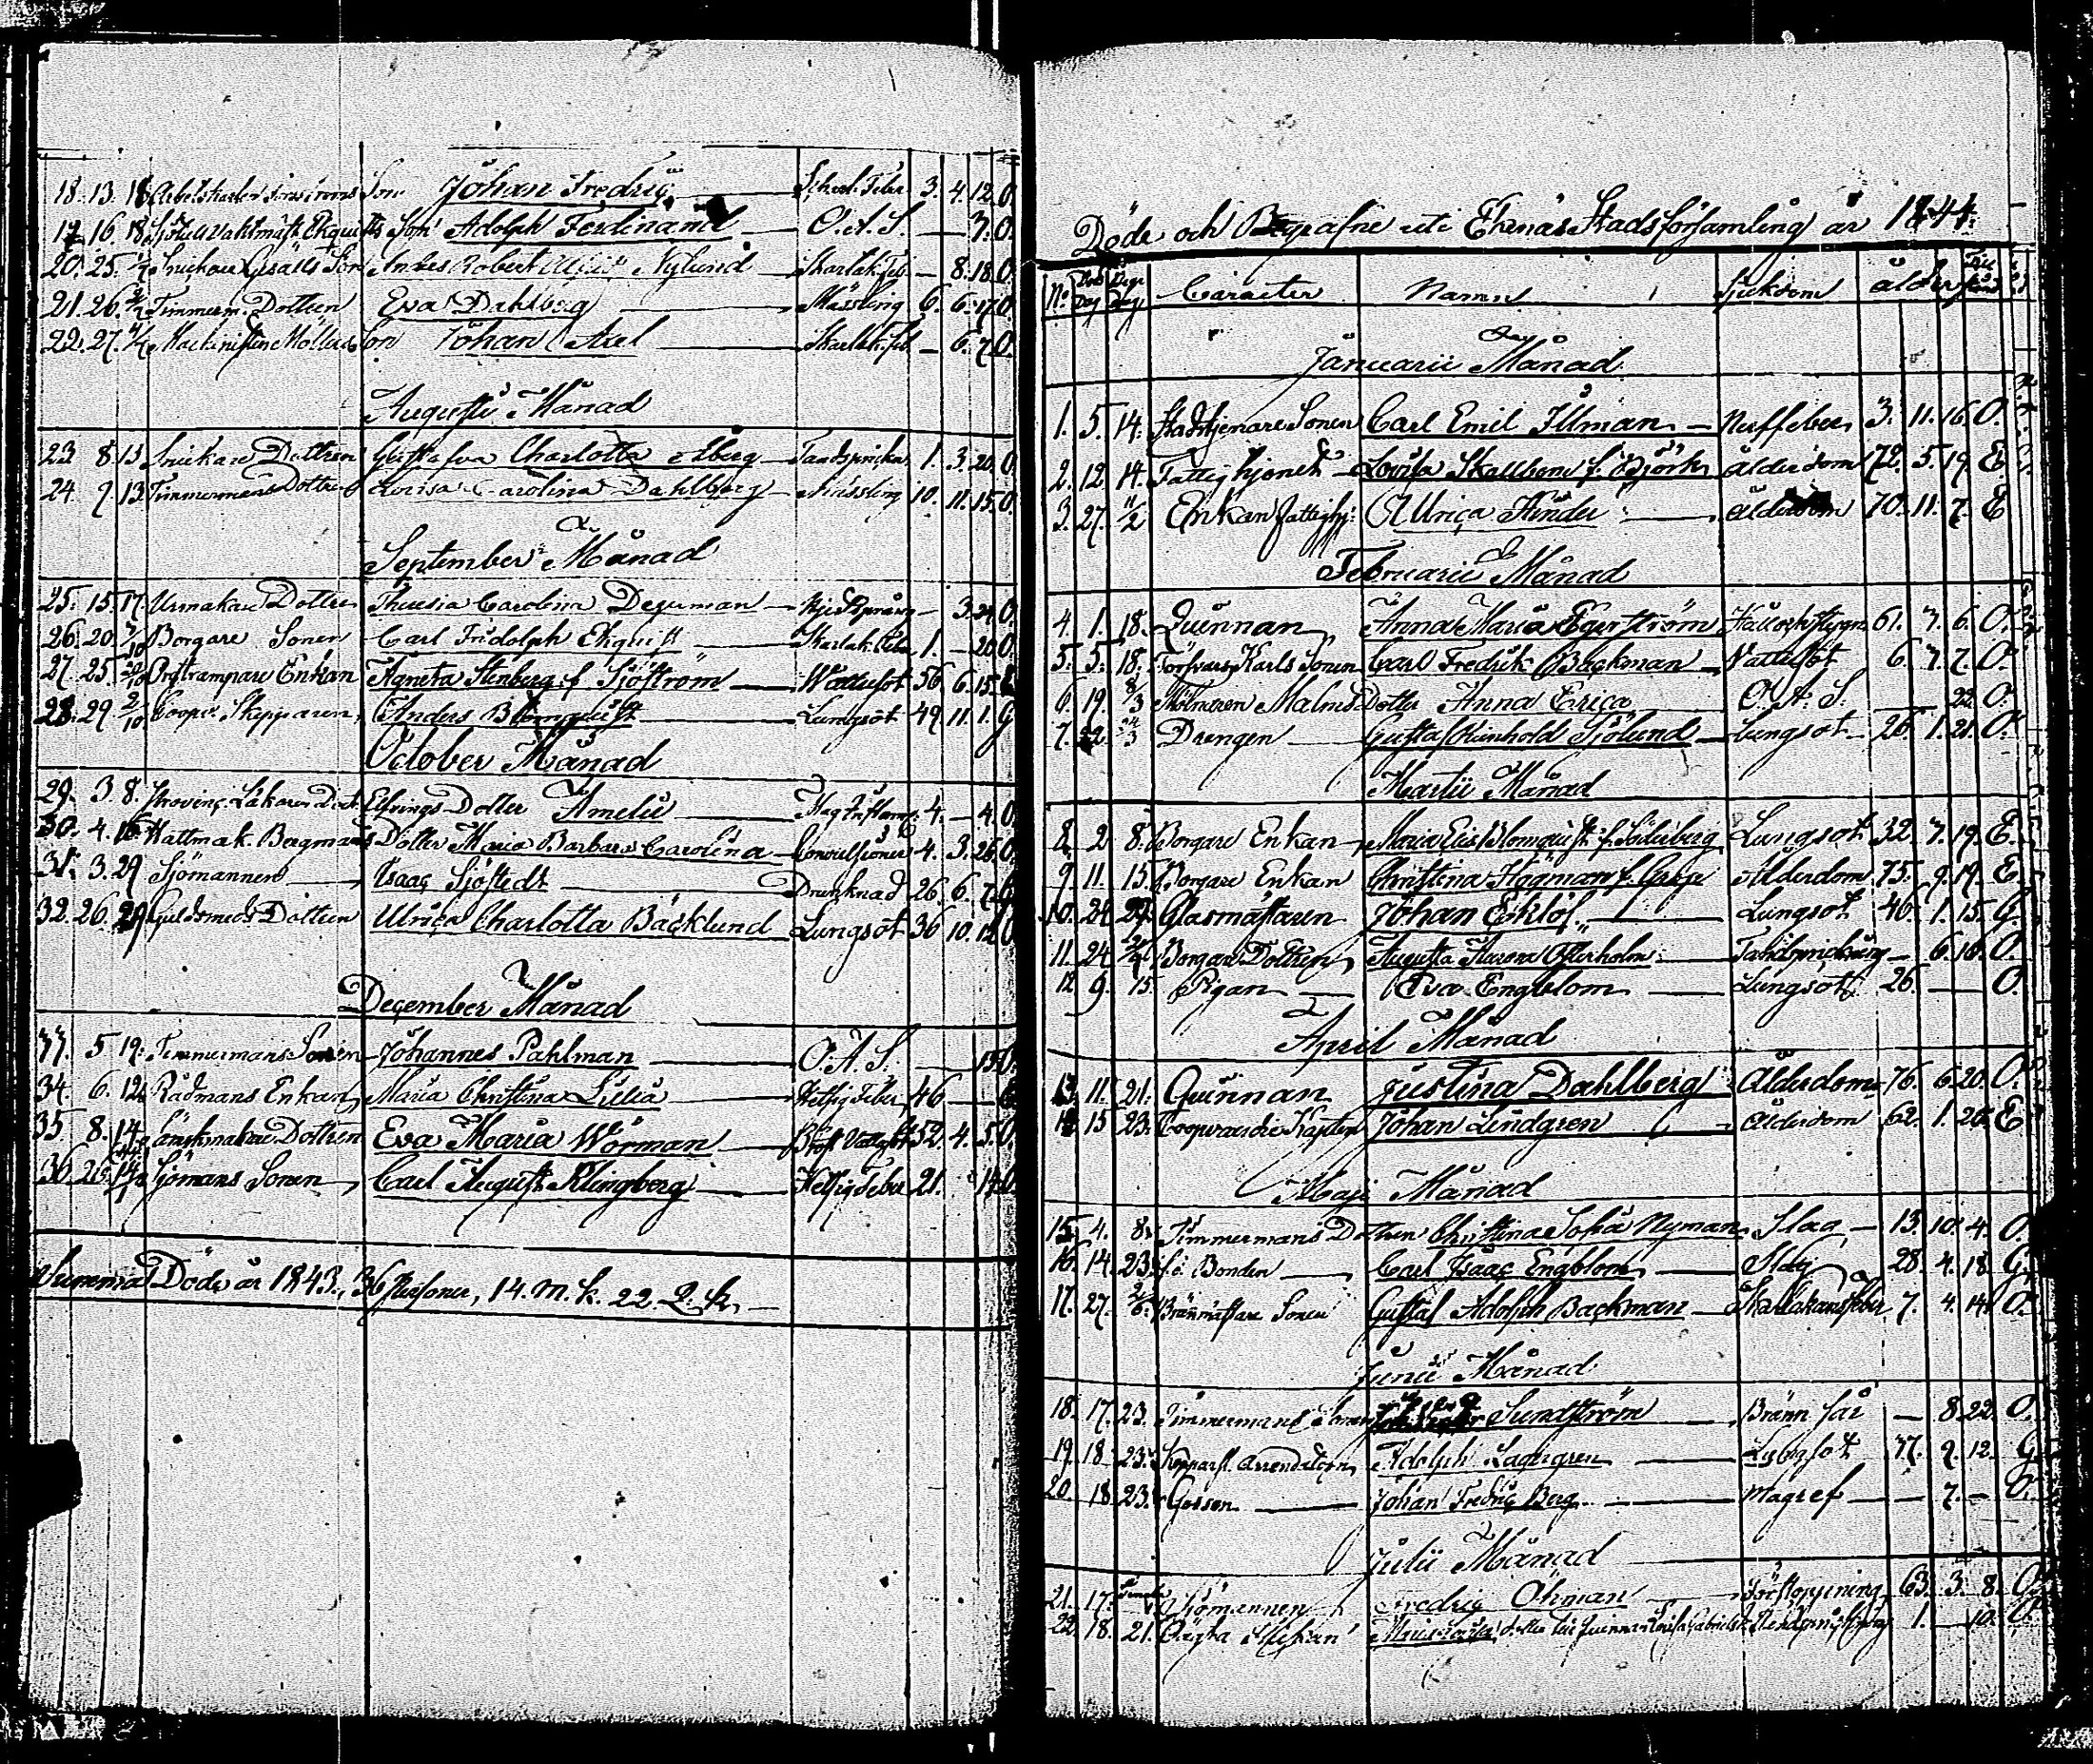 18. 13. 18. Arbetskarlen Son Johan Fredric Scharl. Feber 3. 4. 12. O.
16. 18. Ekquists Son Adolph Ferdinand O.A.S. — 7. O.
20. 25. Snickare Son Robert Nylund Skarlak. Feb. — 8. 18. O.
21. 26. Timmerm. Dottren Eva Dahlberg Mässling 6. 6. 17. O.
22. 27. Machinisten Möllers Son Johan Axel Skarlak. Feb. — 6. 7. O.
Augusti Månad
23 8. 13 Snickare Dottren Gustafva Charlotta Åberg Tandsprickn. 1. 3. 20. O.
24 9. 13. Timmermans Dottren Lovisa Carolina Dahlberg Mässling 10. 11. 15. O.
September Månad
25. 15. 17. Urmakare Dottren Theresia Carolina Degerman — 3. 24. O.
26. 20. Borgare Sonen Carl Fridolph Ekquist Skarlak. Feber 1. — 20. O.
27. 25. Enkan Agneta Stenberg f. Sjöström Wattusot 56. 6. 15. E
28. 29. 2/10. Coopv. Skepparen Anders Blomquist Lungsot 49. 11. 1. G
October Månad
29. 3. 8. Provinc. Läkaren Doct. Elfvings Dotter Amelie 4. — 4. O.
30. 4. 16. Hattmak. Bergmans Dotter Maria Barbara Carolina Convulsioner 4. 3. 26. O.
31. 3. 29 Sjömannen Isaac Sjöstedt Drunknad 26. 6. 7. G
32. 26. 29. Guldsmeds Dottren Ulrica Charlotta Bäcklund Lungsot 36 10. 12. O
December Månad
33. 5 19. Timmermans Sonen Johannes Pahlman O.A.S. — 15. O.
34. 6. 12. Rådmans Enkan Maria Christina Lilia Hetsig Feber 46 — E
35 8. 14. Dottren Eva Maria Wörman Bröst Vattusot 52. 4. 5. O.
36. 26. Sjömans Sonen Carl August Klingberg Hetsig Feber 21. 14. O
Summa Döde år 1843., 36 Personer, 14. M. K. 22. Q. K.
Döde och Begrafne uti Ekenäs Stads församling år 1844.
No. Död Dag Begr. Dag Caracter Namn Sjukdom ålder
Januarii Månad
1. 5. 14. Stadstjenare Sonen Carl Emil Illman Nerffeber 3. 11. 16. O.
2. 12 14. Fattighjonet Lovisa Skallbom f. Björk Ålderdom 72. 5. 19. E
3. 27. 11/2 Enkan fattighj: Ulrica Hinder Ålderdom 70. 11. 7. E
Februarii Månad
4. 1. 18. Quinnan Anna Maria Egerström Håll och styng 61. 7. 6. O.
5. 5. 18. Karls Sonen Carl Fredrik Backman Vattusot 6. 7. 7. O.
6. 19. /3 Möllnaren Malms Dotter Anna Erica O.A.S. — 22. O.
7. 22. /3 Drengen Gustaf Reinhold Sjölund Lungsot 26. 1. 21. O.
Martii Månad
8. 2 8. Borgare Enkan Maria Blomquist f. Söderberg Lungsot 32. 7. 19. E.
9. 11. 15. Borgare Enkan Christina Högman f. Ålderdom 75. 9. 19. E.
10. 24. 29. Glasmästaren Johan Eklöf Lungsot 46. 1. 15. G.
11. 24 Borgare Dottren Augusta Aurora Österholm Tandsprickning — 6. 16. O.
12 9. 15. Pigan Eva Engblom Lungsot 26. — O.
April Månad
13. 11. 21. Quinnan Justina Dahlberg Ålderdom 76. 6. 20. O.
14. 15 23. Coopvaerdie Kapten Johan Lindgren Ålderdom 62. 1. 26. E
Maji Månad
15. 4. 8. Timmermans Dottren Christina Sofia Nyman Slag 13. 10. 4. O.
16. 14. 23. f.d. Bonden Carl Isaac Engblom Slag 28. 4. 18. G.
17. 27. 2/6. Brännmästare Sonen Gustaf Adolph Backman Skarlakansfeber 7. 4. 14. O.
Junii Månad
18. 17. 23. Timmermans Sonen Sundström Bränn sår — 8. 22. O.
19. 18. 23. Adolph Lagergren Lungsot 9. 12. G.
20. 18. 23. Gossen Johan Fredric Berg Magref — 7. — O.
Julii Månad
21. 17. Sjömannen Fredric Öhman Förstoppning 63. 3. 8. O.
22. 18. 21. Oägta Flickan dotter till Quinnan Lovisa 1. — 10. O.